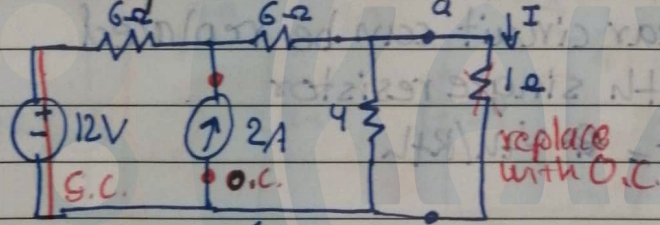 6Ω 6Ω a ↓ I
+ - 12V ↑ 2A 4 1Ω
S.C. O.C. replace
with O.C.